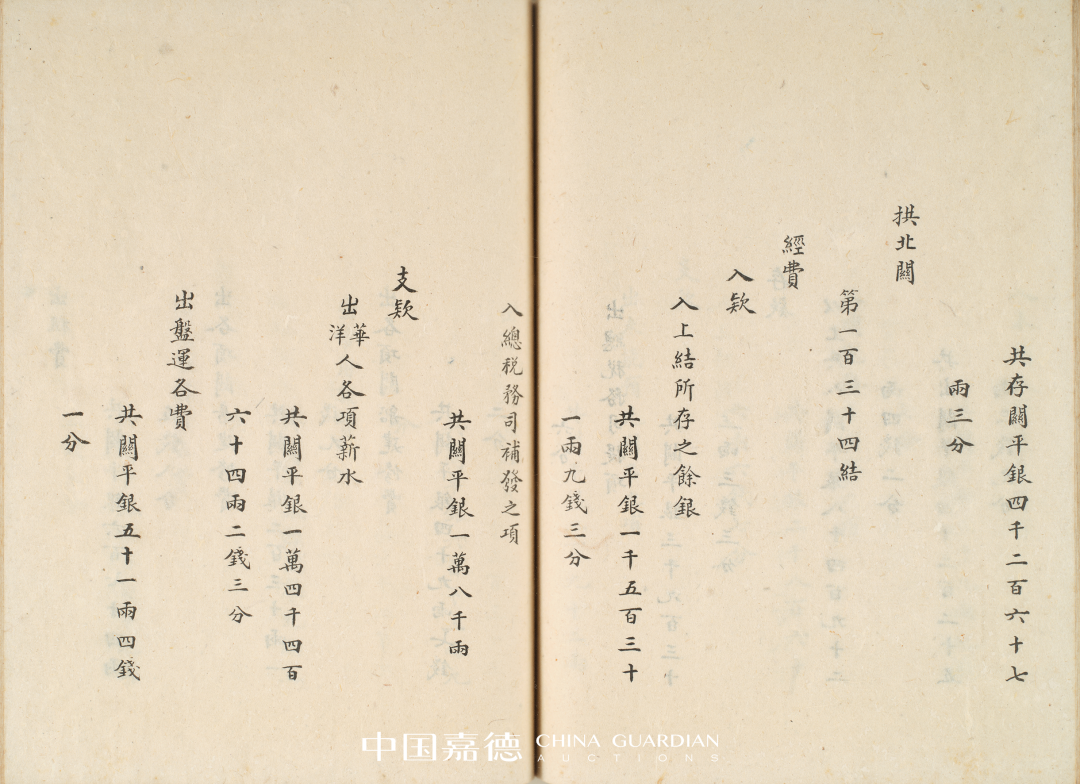 共存關平銀四千二百六十七
兩三分
拱北關
第一百三十四結
經費
入欵
入上結所存之餘銀
共關平銀一千五百三十
一兩九錢三分
入總稅務司補發之項
共關平銀一萬八千兩
支欵
出華洋人各項薪水
共關平銀一萬四千四百
六十四兩二錢三分
出盤運各費
共關平銀五十一兩四錢
一分
中国嘉德 CHINA GUARDIAN
AUCTIONS